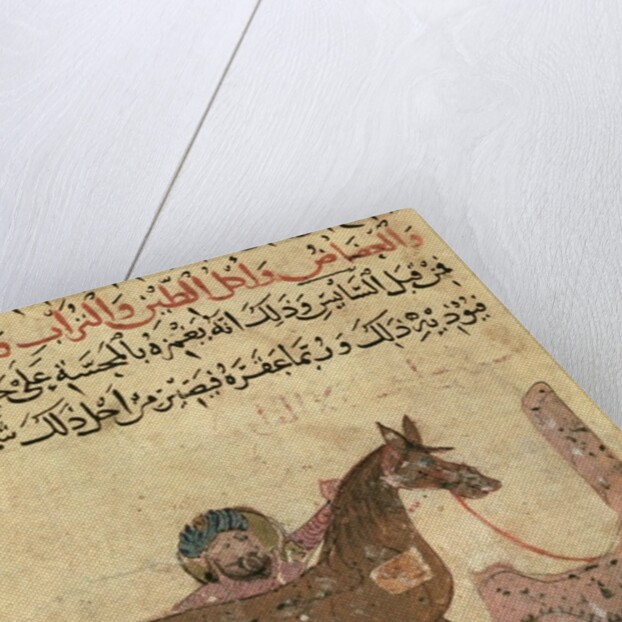 والعضاض واكل الطين والتراب و
فمن قبل السايس وذلك انه يغمزه بالمجسة على
فيوذيه ذلك وربما عقره فيصير من اجل ذلك